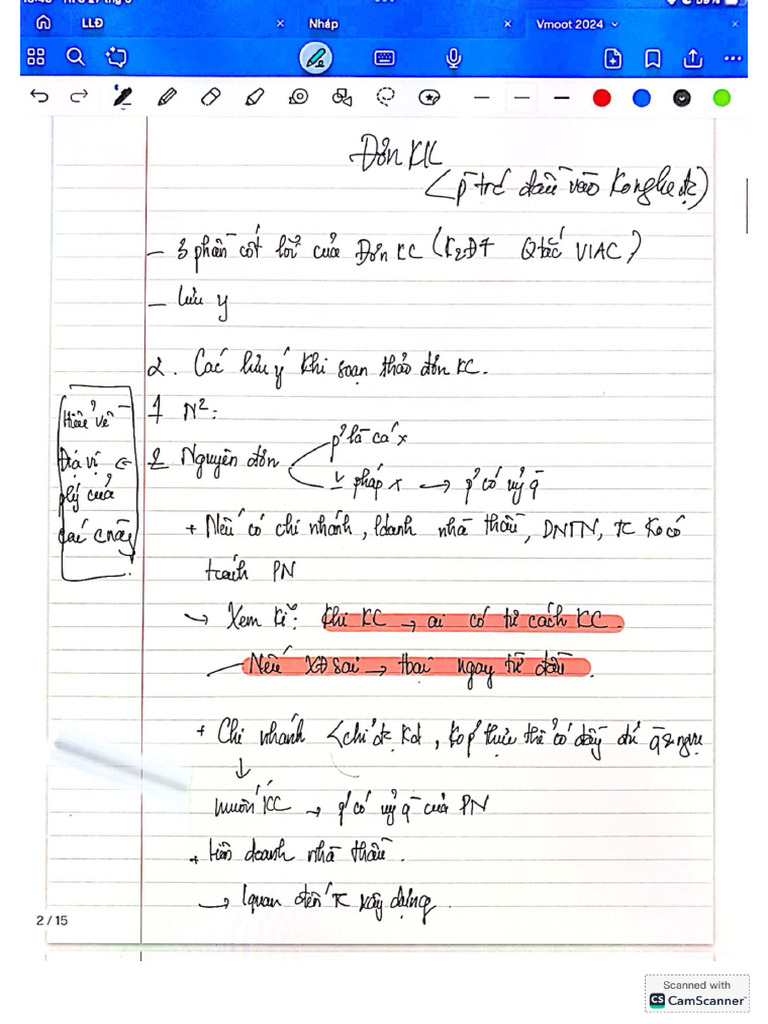 LLĐ
Nháp
Vmoot 2024
Đơn KK
(p trớ đầu vào Ko nghe đc)
– 3 phần cốt lõi của Đơn KC (K2Đ7 Qtắc VIAC)
– lưu ý
2. Các lưu ý khi soạn thảo đơn KC.
1 N²:
p' là cá x
2 Nguyên đơn
pháp x → p' có uỷ q̄
Hiểu về
Địa vị
plý của
các c này
+ Nếu có chi nhánh, ldanh nhà thầu, DNTN, TC Ko có
tcách PN
→ Xem kĩ: Khi KC → ai có tư cách KC.
Nếu XĐ sai → thai ngay từ đầu.
+ Chi nhánh < chỉ đc Kd, Ko p' thực thể có đầy đủ q̄ & ngvụ
↓
muốn KC → p' có uỷ q̄ của PN
+ liên doanh nhà thầu.
→ lquan đến TC xây dựng.
2 / 15
Scanned with
CS CamScanner